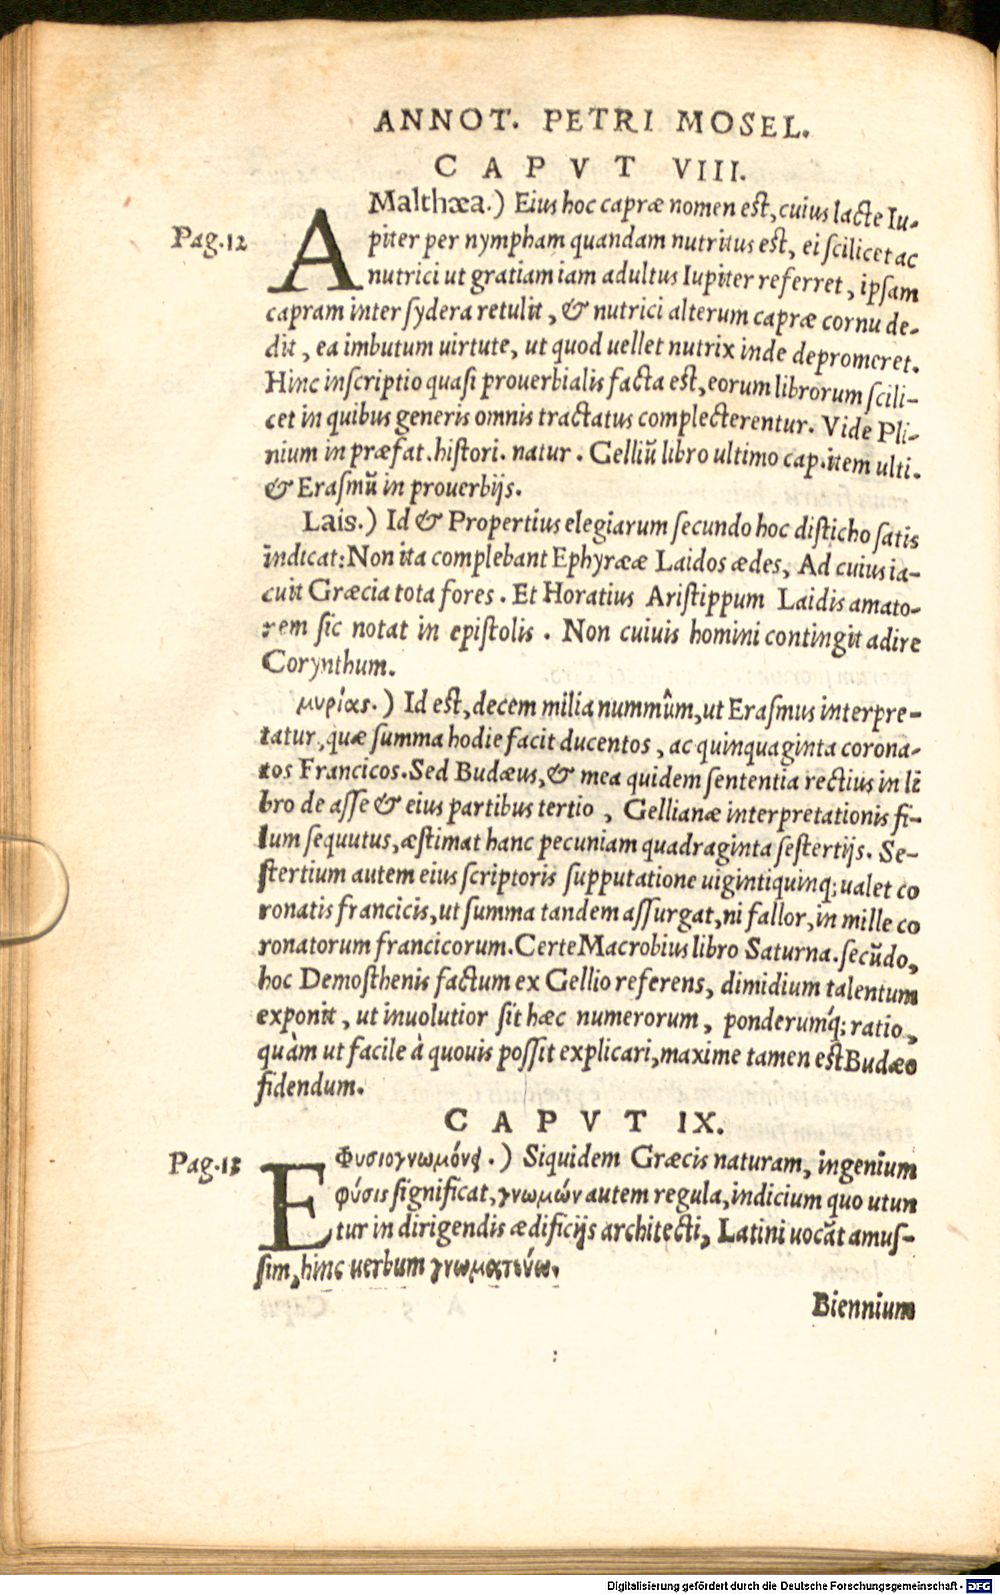 ANNOT. PETRI MOSEL.
CAPVT VIII.
AMalthæa.) Eius hoc capræ nomen est, cuius lacte Iu-
Pag.12
piter per nympham quandam nutritus est, ei scilicet ac
nutrici ut gratiam iam adultus Iupiter referret, ipsam
capram inter sydera retulit, & nutrici alterum capræ cornu de-
dit, ea imbutum uirtute, ut quod uellet nutrix inde depromeret.
Hinc inscriptio quasi prouerbialis facta est, eorum librorum scili-
cet in quibus generis omnis tractatus complecterentur. Vide Pli-
nium in præfat. histori. natur. Gelliū libro ultimo cap. item ulti.
& Erasmū in prouerbijs.
Lais.) Id & Propertius elegiarum secundo hoc disticho satis
indicat: Non ita complebant Ephyrææ Laidos ædes, Ad cuius ia-
cuit Græcia tota fores. Et Horatius Aristippum Laidis amato-
rem sic notat in epistolis. Non cuiuis homini contingit adire
Corynthum.
μυρίας.) Id est, decem milia nummûm, ut Erasmus interpre-
tatur, quæ summa hodie facit ducentos, ac quinquaginta corona-
tos Francicos. Sed Budæus, & mea quidem sententia rectius in li
bro de asse & eius partibus tertio, Gellianæ interpretationis fi-
lum sequutus, æstimat hanc pecuniam quadraginta sestertijs. Se-
stertium autem eius scriptoris supputatione uigintiquinq; ualet co
ronatis francicis, ut summa tandem assurgat, ni fallor, in mille co
ronatorum francicorum. Certe Macrobius libro Saturna. secūdo,
hoc Demosthenis factum ex Gellio referens, dimidium talentum
exponit, ut inuolutior sit hæc numerorum, ponderumq́; ratio,
quàm ut facile à quouis possit explicari, maxime tamen est Budæo
fidendum.
CAPVT IX.
EΦυσιογνωμόνει.) Siquidem Græcis naturam, ingenium
Pag.13
φύσις significat, γνωμών autem regula, indicium quo utun
tur in dirigendis ædificijs architecti, Latini uocāt amus-
sim, hinc uerbum γνωματεύω.
Biennium
Digitalisierung gefördert durch die Deutsche Forschungsgemeinschaft - DFG